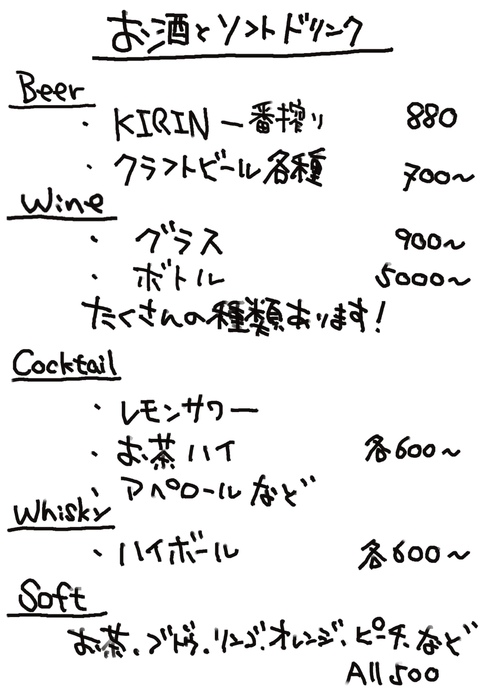 お酒とソフトドリンク
Beer
・KIRIN一番搾り 880
・クラフトビール各種 700～
Wine
・グラス 900～
・ボトル 5000～
たくさんの種類あります!
Cocktail
・レモンサワー
・お茶ハイ 各600～
・アペロールなど
Whisky
・ハイボール 各600～
Soft
お茶、ブドウ、リンゴ、オレンジ、ピーチ、など
All 500